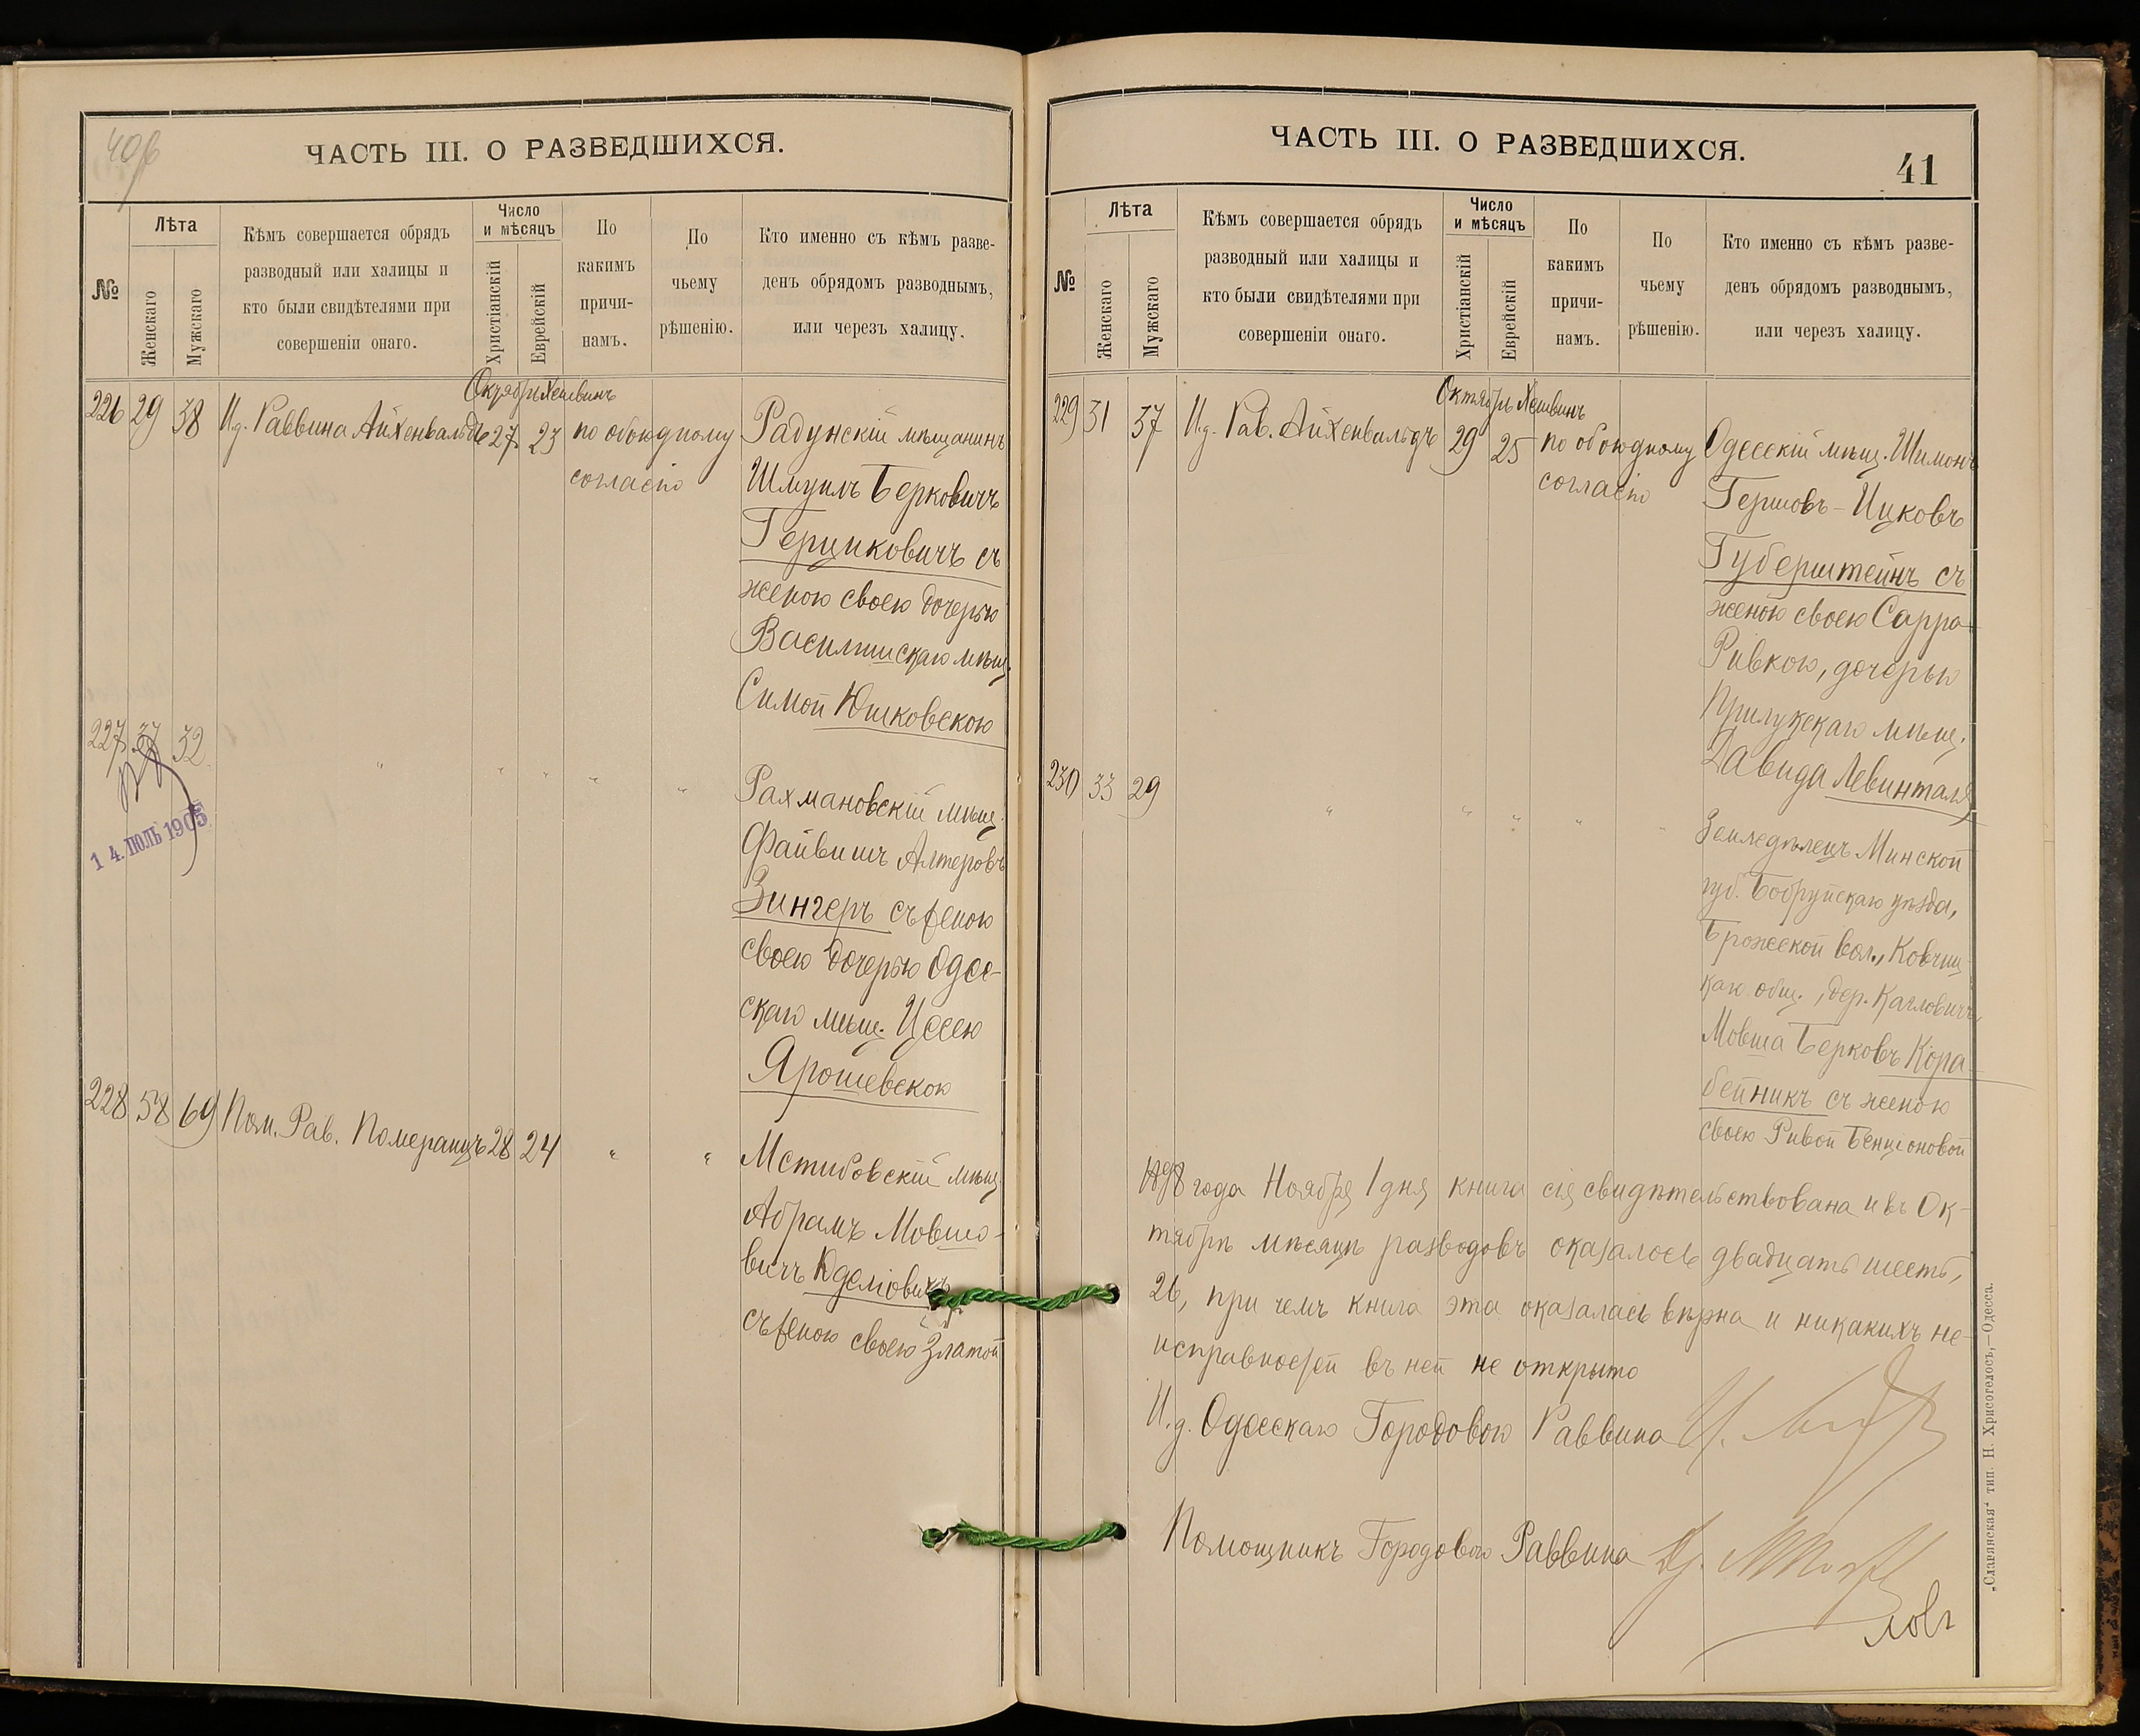 40 об
ЧАСТЬ III. О РАЗВЕДШИХСЯ.
№
Лѣта
Женскаго
Мужскаго
Кѣмъ совершается обрядъ
разводный или халицы и
кто были свидѣтелями при
совершеніи онаго.
Число
и мѣсяцъ
Христіанскій
Еврейскій
По
какимъ
причи-
намъ.
По
чьему
рѣшенію.
Кто именно съ кѣмъ разве-
денъ обрядомъ разводнымъ,
или черезъ халицу.
Октябрь Хешвинъ
226 29 38 И.д. Раввина Айхенвальдъ 27 23 по обоюдному
согласію
Радунскій мѣщанинъ
Шмуилъ Берковичъ
Герциковичъ съ
женою своею дочерью
Василишскаго мѣщ.
Симой Юшковскою
227 37 32 " " " " "
14. ІЮЛЬ 1905
Рахмановскій мѣщ.
Файвишъ Алтеровъ
Зингеръ съ женою
своею дочерью Одес-
скаго мѣщ. Цесею
Ярошевскою
228 58 69 Пом. Рав. Померанцъ 28 24 " "
Мстибовскій мѣщ.
Абрамъ Мовшо-
вичъ Юделіовичъ
съ женою своею Златой
ЧАСТЬ III. О РАЗВЕДШИХСЯ.
41
№
Лѣта
Женскаго
Мужскаго
Кѣмъ совершается обрядъ
разводный или халицы и
кто были свидѣтелями при
совершеніи онаго.
Число
и мѣсяцъ
Христіанскій
Еврейскій
По
какимъ
причи-
намъ.
По
чьему
рѣшенію.
Кто именно съ кѣмъ разве-
денъ обрядомъ разводнымъ,
или черезъ халицу.
Октябрь Хешвинъ
229 31 37 И.д. Рав. Айхенвальдъ 29 25 по обоюдному
согласію
Одесскій мѣщ. Шимонъ
Гершовъ-Ицковъ
Губерштейнъ съ
женою своею Сарра-
Ривкою, дочерью
Прилукскаго мѣщ.
Давида Левинталя
230 33 29 " " " " "
Земледѣлецъ Минской
губ. Бобруйскаго уѣзда,
Брожской вол., Ковчиц-
каго общ., дер. Кагловичъ
Мовша Берковъ Кора-
бейникъ съ женою
своею Ривой Бенціоновой
1898 года Ноября 1 дня книга сія свидѣтельствована и въ Ок-
тябрѣ мѣсяцѣ разводовъ оказалось двадцать шесть,
26, при чемъ книга эта оказалась вѣрна и никакихъ не-
исправностей въ ней не открыто
И.д. Одесскаго Городового Раввина
Помощникъ Городового Раввина
„Славянская" тип. Н. Хрисогелосъ,—Одесса.